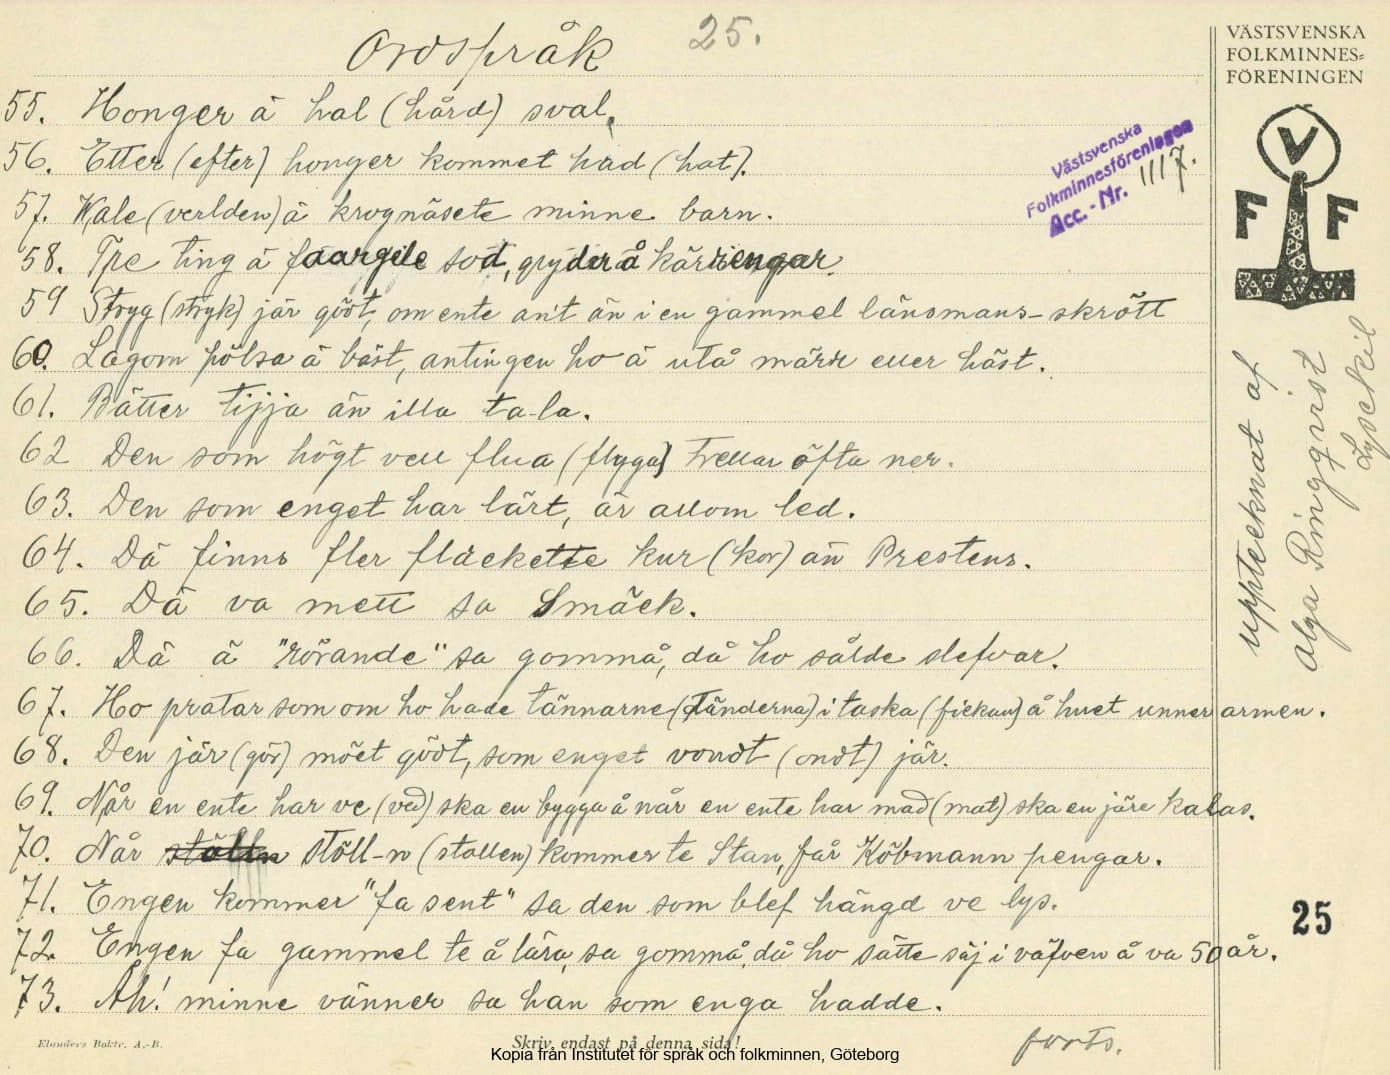 Ordspråk 25.
55. Honger ä hal (hård) sval.
56. Etter (efter) honger kommet had (hat).
57. Wale (verlden) ä krognäsete minne barn.
58. Tre ting ä faargele sod, gryder å kärrengar.
59 Stryg (stryk) jär gôdt, om ente an't än i en gammel länsmans-skrôtt
60. Lagom pölsa ä bäst, antingen ho ä utå märr eller häst.
61. Bätter tijja än illa ta-la.
62 Den som högt vell flua (flyga) trellar öfta ner.
63. Den som enget har lärt, är allom led.
64. Dä finns fler fläckette kur (kor) än Prestens.
65. Dä va mett sa Smäck.
66. Dä ä "rörande" sa gommå, då ho sålde slefvar.
67. Ho pratar som om ho hade tännarne (tänderna) i taska (fickan) å huet unner armen.
68. Den jär (gör) môet gôdt, som enget vondt (ondt) jär.
69. Når en ente har ve (ved) ska en bygga å når en ente har mad (mat) ska en järe kalas.
70. Når stöll-n (stallen) kommer te Stan, får Köbmann pengar.
71. Engen kommer "fa sent" sa den som blef hängd ve lys.
72. Engen fa gammel te å lära, sa gommå, då ho sätte säj i väfven å va 50 år.
73. Åh! minne vänner sa han som enga hadde.
forts.
Elanders Boktr. A.-B.
Skriv endast på denna sida!
Kopia från Institutet för språk och folkminnen, Göteborg
Västsvenska
Folkminnesföreningen
Acc. - Nr. 1117.
VÄSTSVENSKA
FOLKMINNES-
FÖRENINGEN
V
F F
upptecknat af
Alga Ringqvist
Lysekil
25